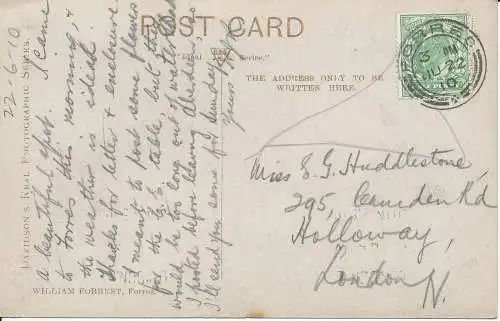 POST CARD
THE ADDRESS ONLY TO BE
WRITTEN HERE.
Series."
FORRES
JU 22
10
22-6-10
DAVIDSON'S REAL PHOTOGRAPHIC SERIES.
WILLIAM FORREST, Forres
a beautiful spot. I came
to Forres this morning, &
the weather is ideal.
Thanks for letter & enclosure
I meant to post some flowers
for the table, but they
would be too long out of water
I posted before leaving Aberdeen
I'll send you some for Sunday
Yours
Miss E. G. Huddlestone,
295, Camden Rd
Holloway,
London
N.